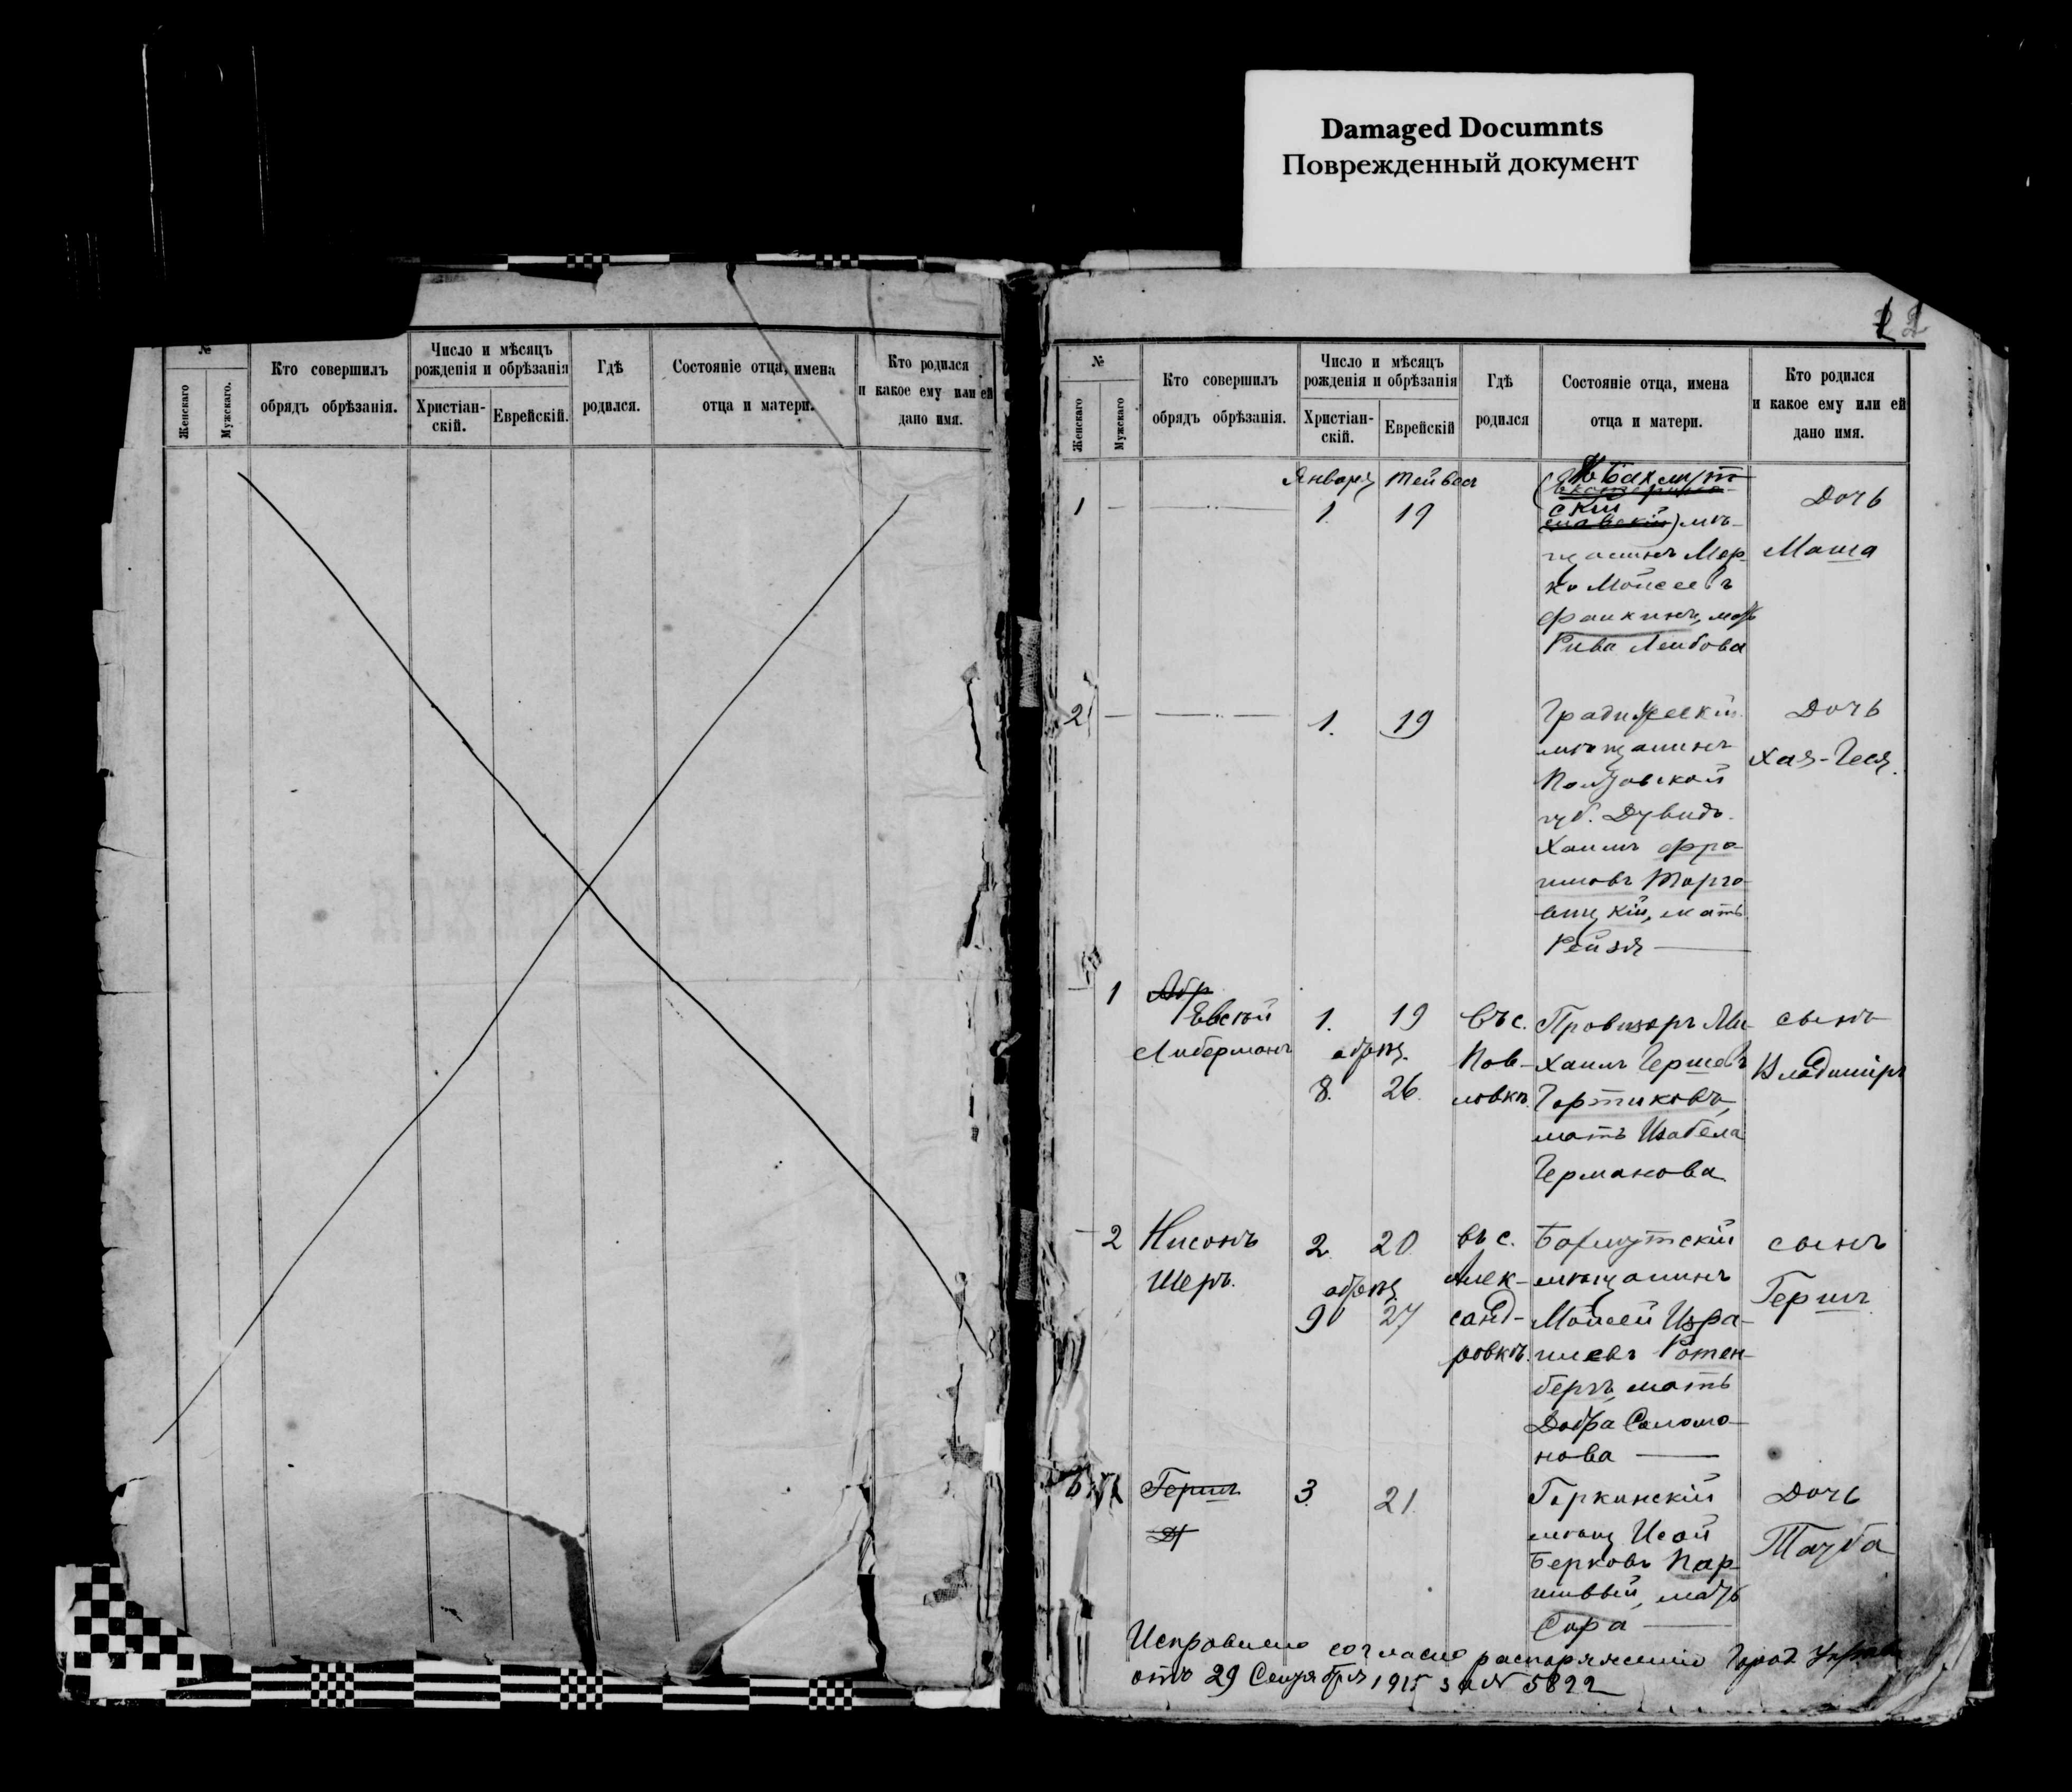 Damaged Documnts
Поврежденный документ
№
Женскаго
Мужскаго.
Кто совершилъ
обрядъ обрѣзанія.
Число и мѣсяцъ
рожденія и обрѣзанія
Христіан-
скій.
Еврейскій.
Гдѣ
родился.
Состояніе отца, имена
отца и матери.
Кто родился
и какое ему или ей
дано имя.
2
№
Женскаго
Мужскаго
Кто совершилъ
обрядъ обрѣзанія.
Число и мѣсяцъ
рожденія и обрѣзанія
Христіан-
скій.
Еврейскій
Гдѣ
родился
Состояніе отца, имена
отца и матери.
Кто родился
и какое ему или ей
дано имя.
Января Тейвес
1
1.
19
Бахмут
скій
мѣ-
щанинъ Мор-
ко Мойсеевъ
Фанкинъ, мать
Рива Лейбова
Дочь
Маша
2
1.
19
Градижскій
мѣщанинъ
Полтавской
губ. Дувидъ
Хаимъ Фро-
имовъ Торго-
вицкій, мать
Рейзя
Дочь
Хая-Геся.
1
Абр
Евсей
Либерманъ
1.
19
обрѣз.
8.
26.
въ с.
Пав-
ловкѣ.
Провизоръ Ми-
хаилъ Гершевъ
Гортиковъ,
мать Изабела
Германова
сынъ
Владиміръ
2
Нисонъ
Шеръ.
2.
20.
обрѣз.
9
27
въ с.
Алек-
санд-
ровкѣ.
Бахмутскій
мѣщанинъ
Мойсей Изра-
илевъ Ротен-
бергъ, мать
Добра Соломо-
нова
сынъ
Гершъ.
3
Гершъ
3.
21.
мѣщ. Исай
Берковъ Пар-
шивый, мать
Сора
Дочь
Тауба
Исправлено согласно распоряженію Город Управы
отъ 29 Сентября 1915 за № 5822